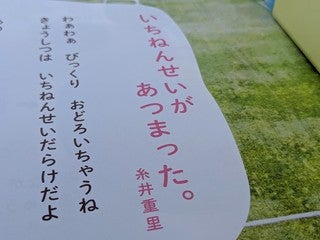 いちねんせいが
あつまった。
糸井重里
わあわあ びっくり おどろいちゃうね
きょうしつは いちねんせいだらけだよ